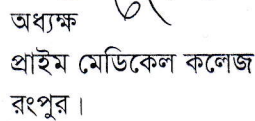 অধ্যক্ষ
প্রাইম মেডিকেল কলেজ
রংপুর।